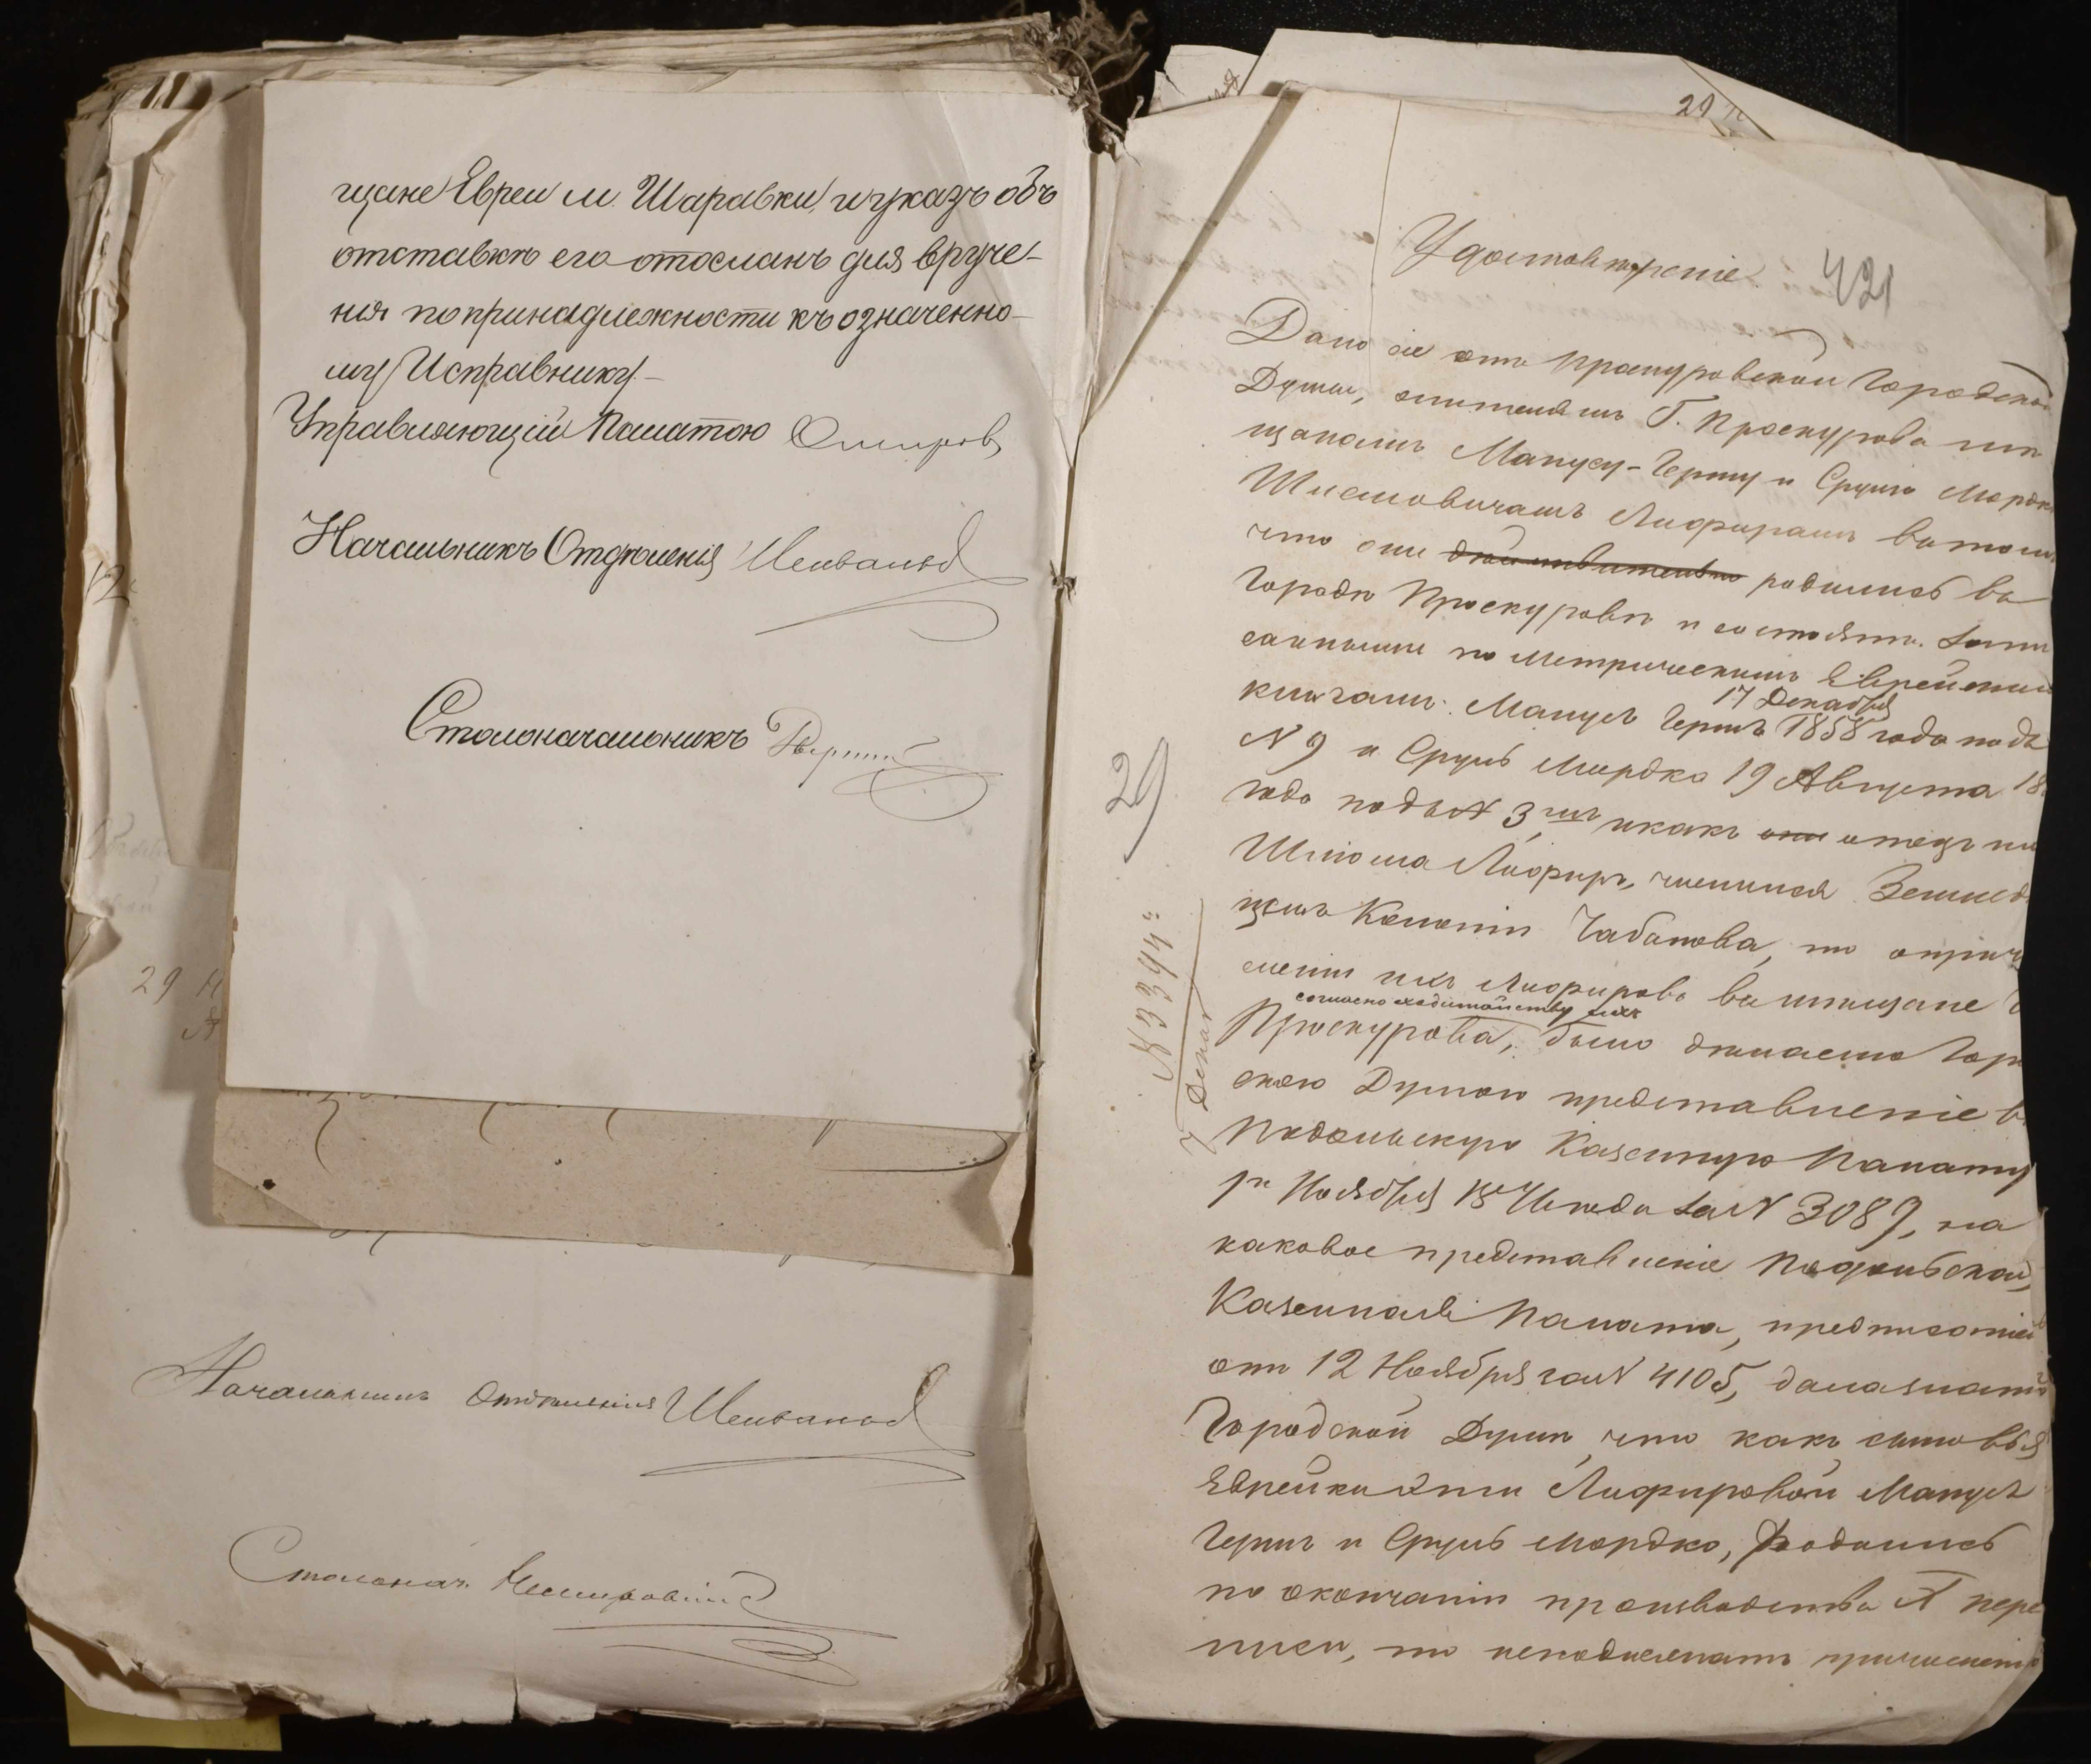 щане Евреи м. Шаравки, и указъ объ
отставкѣ его отосланъ для вруче-
нія по принадлежности къ означенно-
му Исправнику.
Управляющій Палатою
Начальникъ Отдѣленія
Столоначальникъ
29
Начальникъ Отдѣленія
Столонач.
29
421
Удостовѣреніе
Дано сіе отъ Проскуровской Городской
Думы, жителямъ Г. Проскурова мѣ
щанамъ Манусу-Гершу и Срулю Мордк
Шлемовичамъ Лифирамъ въ томъ
что они дѣйствительно родились въ
Городѣ Проскуровѣ и состоятъ запи
санными по метрическимъ Еврейским
книгамъ: Манусъ Гершъ 17 Декабря 1858 года подъ
N 9 и Сруль Мордко 19 Августа 18
года подъ N 3, и какъ они отецъ их
Шлёма Лифиръ, числился Землед
цемъ Колоніи Чабанова, то о причи
сленіи ихъ Лифировъ въ мѣщане г
согласно ходатайству ихъ
Проскурова, было дѣлаемо Горо
скою Думою представленіе въ
Подольскую Казенную Палату
Ноября года за N 3089, на
каковое представленіе Подольская
Казенная Палата, предписаніем
отъ 12 Ноября за N 4105, дала знать
Городской Думѣ, что какъ сыновья
Еврейки Лифировой Манусъ
Гершъ и Сруль Мордко, родились
по окончаніи производства X пере
писи, то не подлежатъ причисленію
29
N 3394
7 Декаб